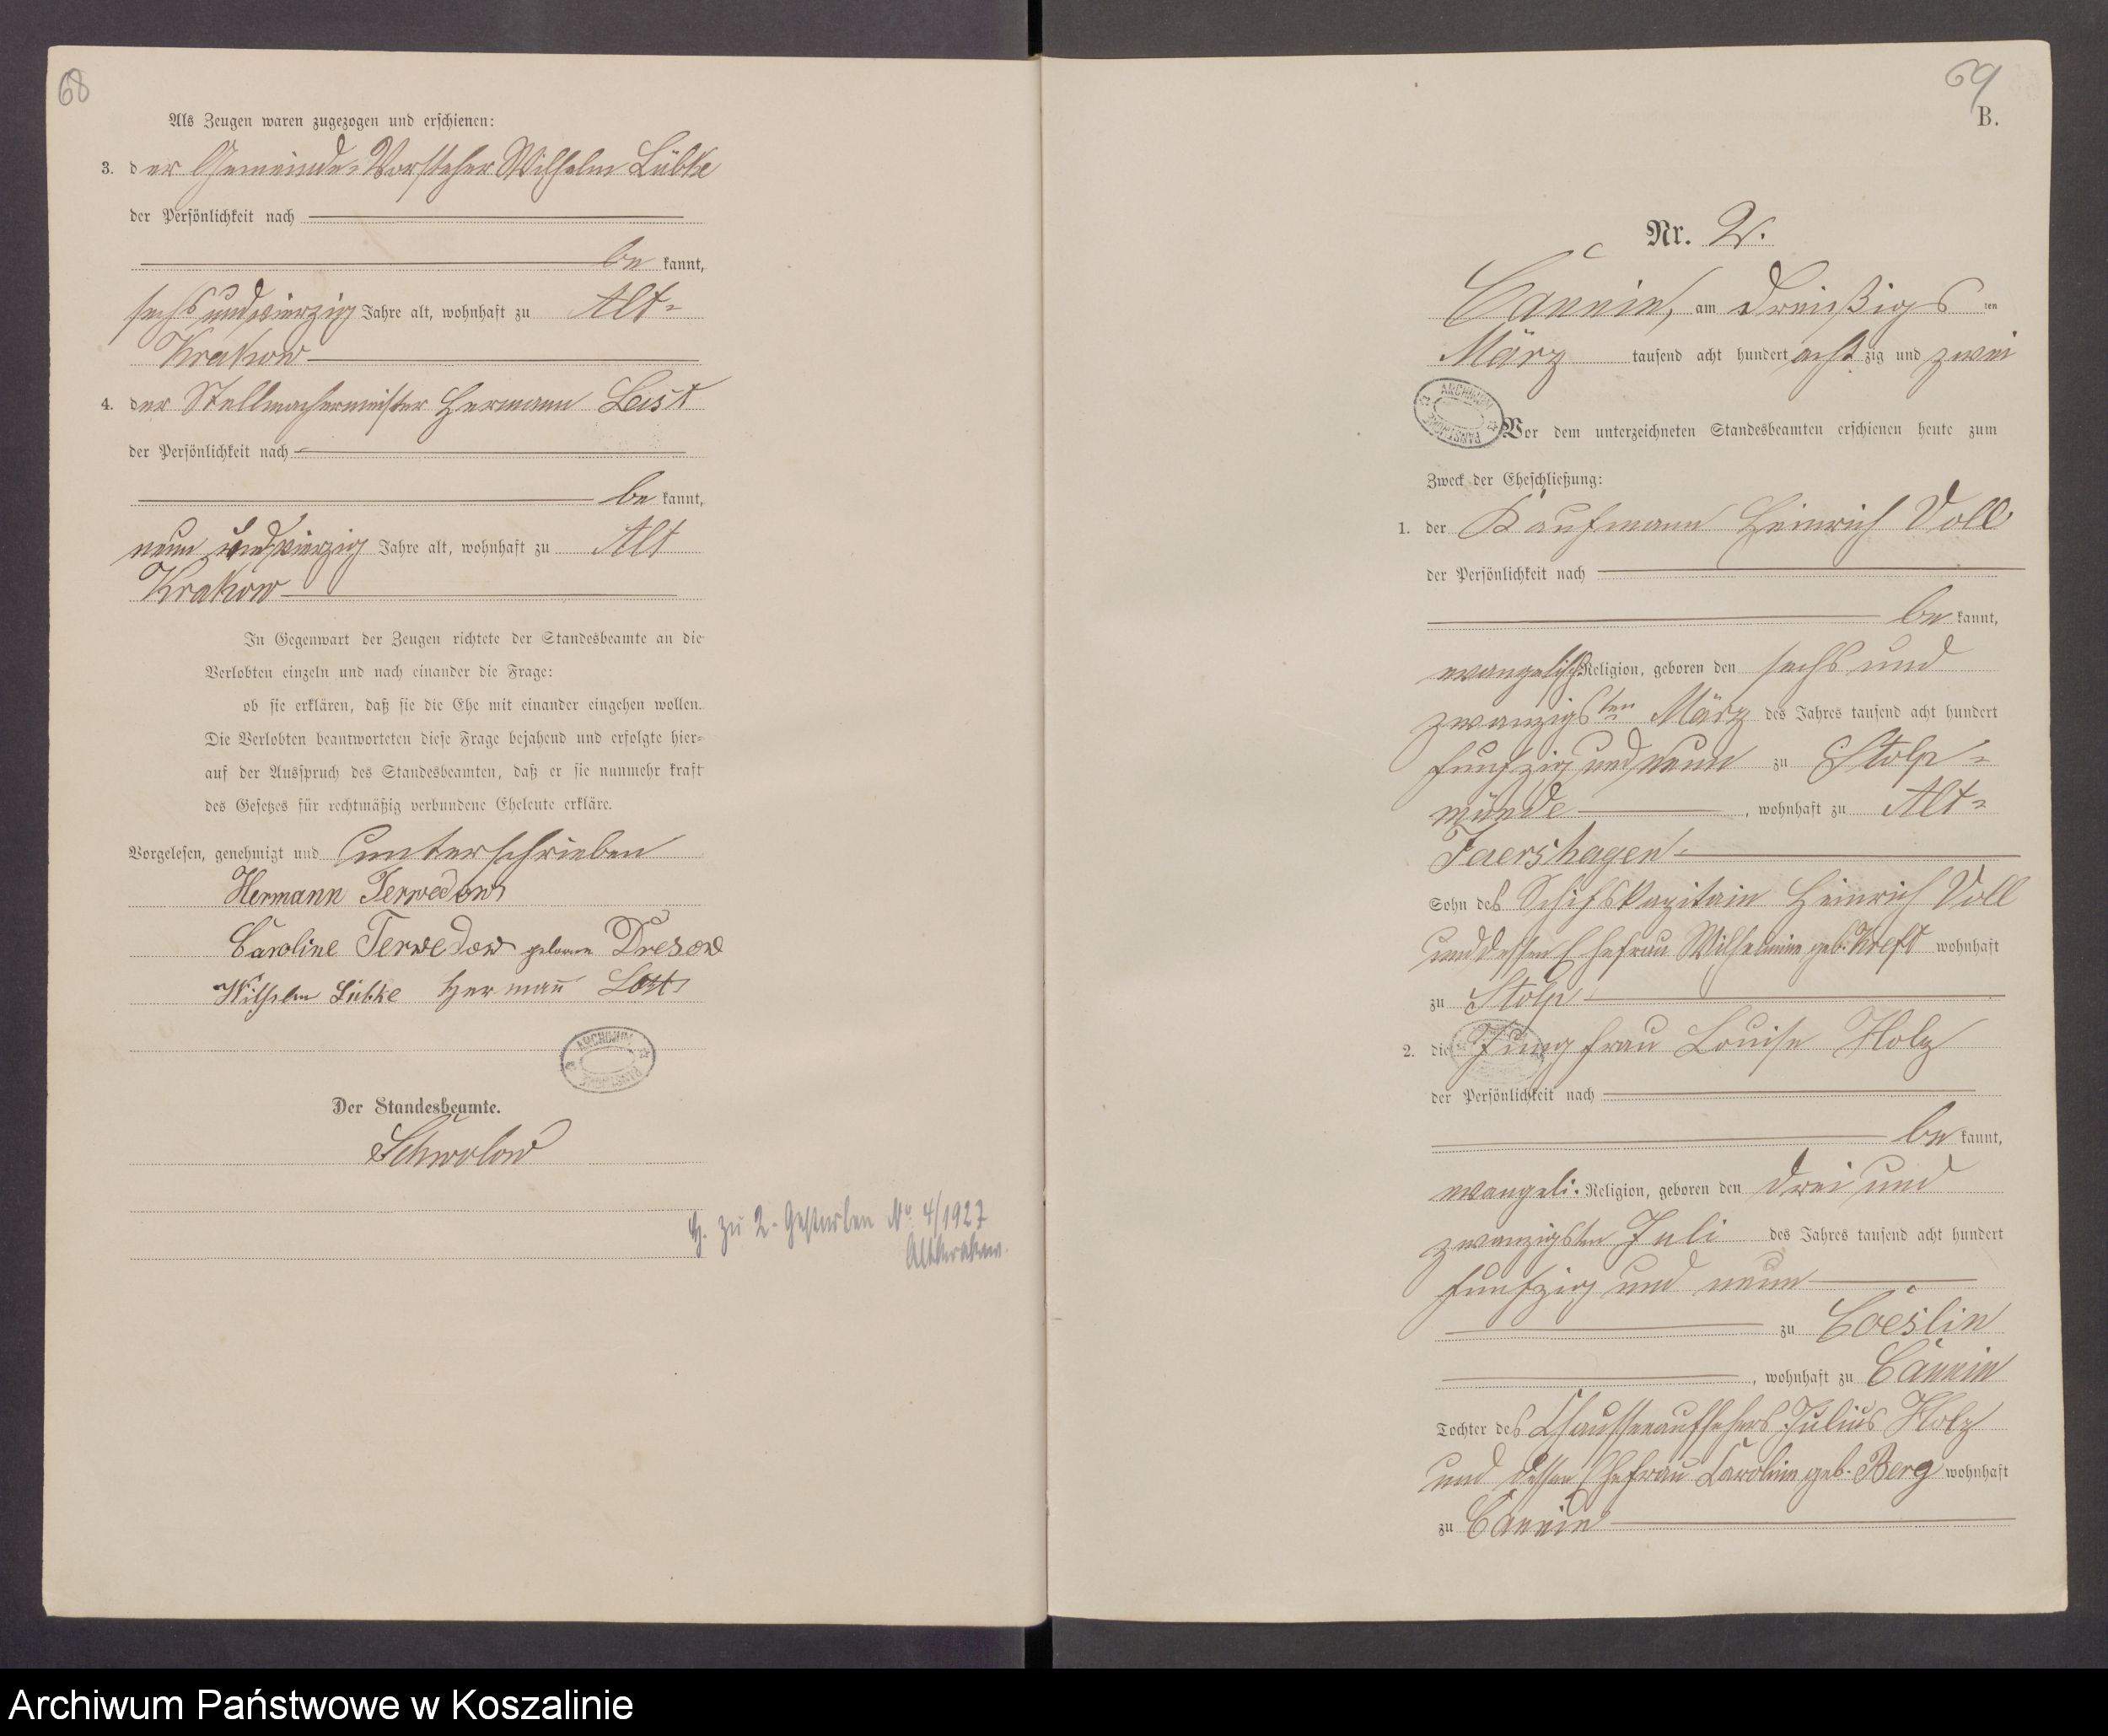 68
Als Zeugen waren zugezogen und erschienen:
3. der Gemeinde-Vorsteher Wilhelm Lübke
der Persönlichkeit nach
bekannt,
sechs und vierzig Jahre alt, wohnhaft zu Alt-
Krakow
4. der Stellmachermeister Hermann
der Persönlichkeit nach
bekannt,
neun und vierzig Jahre alt, wohnhaft zu Alt
Krakow
In Gegenwart der Zeugen richtete der Standesbeamte an die
Verlobten einzeln und nach einander die Frage:
ob sie erklären, daß sie die Ehe mit einander eingehen wollen.
Die Verlobten beantworteten diese Frage bejahend und erfolgte hier-
auf der Ausspruch des Standesbeamten, daß er sie nunmehr kraft
des Gesetzes für rechtmäßig verbundene Eheleute erkläre.
Vorgelesen, genehmigt und unterschrieben
Hermann Terwedow
Caroline Terwedow geborene Dresow
Wilhelm Lübke Hermann
ARCHIWUM
PAŃSTWOWE
Der Standesbeamte.
Schwolow
H. zu 2. Gestorben No 4/1927
Altkrakow.
69
B.
Nr. 2.
Cannin, am dreißigsten
März tausend acht hundert achtzig und zwei
ARCHIWUM
PAŃSTWOWE
Vor dem unterzeichneten Standesbeamten erschienen heute zum
Zweck der Eheschließung:
1. der Kaufmann Heinrich Voll
der Persönlichkeit nach
bekannt,
evangelisch Religion, geboren den sechs und
zwanzigsten März des Jahres tausend acht hundert
funfzig und neun zu Stolp-
münde, wohnhaft zu Alt-
Jaershagen
Sohn des Schifskapitain Heinrich Voll
und dessen Ehefrau Wilhelmine geb. Kreft wohnhaft
zu Stolp
2. die Jungfrau Louise Holz
der Persönlichkeit nach
bekannt,
evangeli. Religion, geboren den drei und
zwanzigsten Juli des Jahres tausend acht hundert
funfzig und neun
zu Coeslin
, wohnhaft zu Cannin
Tochter des Chausseeaufsehers Julius Holz
und dessen Ehefrau Caroline geb. Berg wohnhaft
zu Cannin
Archiwum Państwowe w Koszalinie